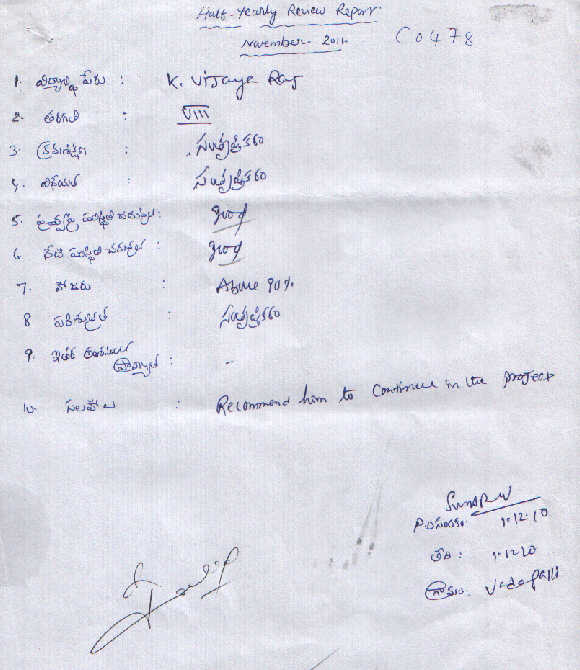 Half-Yearly Review Report
November - 2010 C0478
1. విద్యార్థి పేరు : K. Vijaya Raj
2. తరగతి : VIII
3. క్రమశిక్షణ : సంతృప్తికరం
4. వినయత : సంతృప్తికరం
5. పరిస్థితి చదువుల : good
6. నేటి పరిస్థితి చదువుల : good
7. హాజరు : Above 90%
8 పరిశుభ్రత : సంతృప్తికరం
9. ఇతర : -
10. సలహాలు : Recommend him to continue in the project
1.12.10
తేది : 1.12.10
గ్రామం: